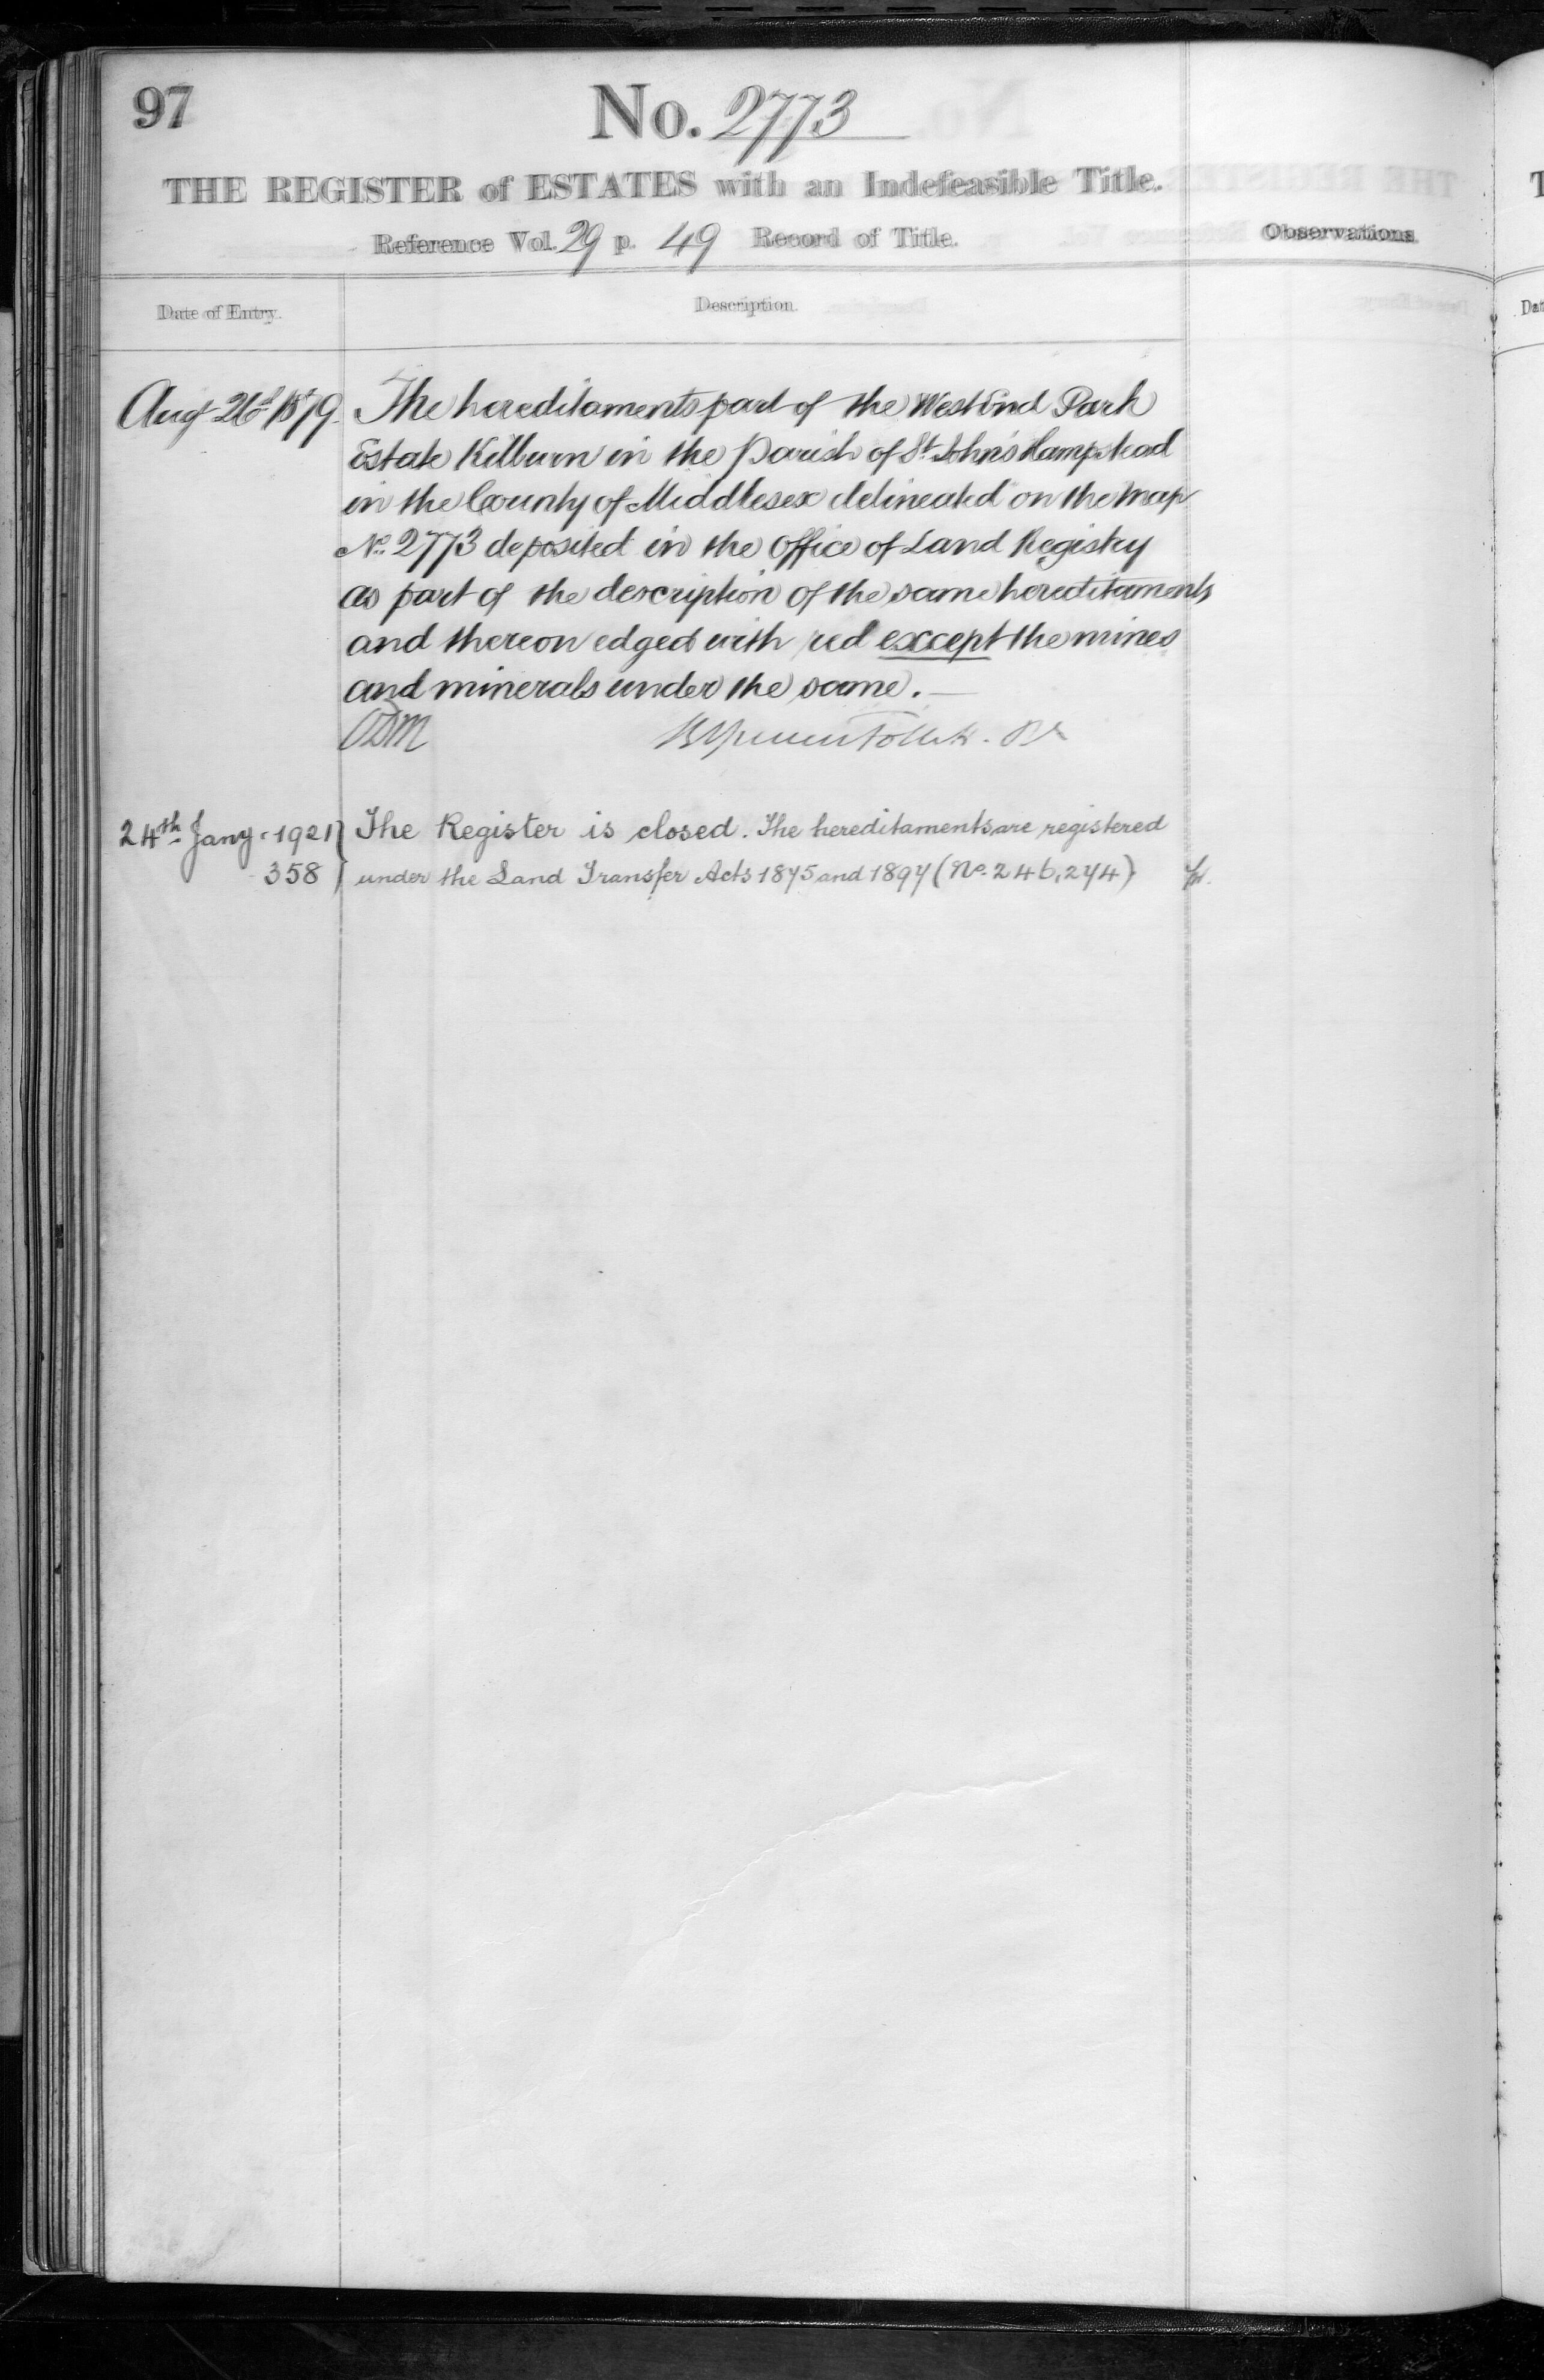 97
No. 2773
THE REGISTER of ESTATES with an Indefeasible Title.
Reference Vol. 29 p. 49 Record of Title.
Observations
Date of Entry.
Description.
Aug 26th 1879. The hereditaments part of the West End Park
Estate Kilburn in the Parish of St. John's Hampstead
in the County of Middlesex delineated on the map
No. 2773 deposited in the Office of Land Registry
as part of the description of the same hereditaments
and thereon edged with red except the mines
and minerals under the same.
24th Jany. 1921 The Register is closed. The hereditaments are registered
358 under the Land Transfer Acts 1875 and 1897 (No. 246,274)